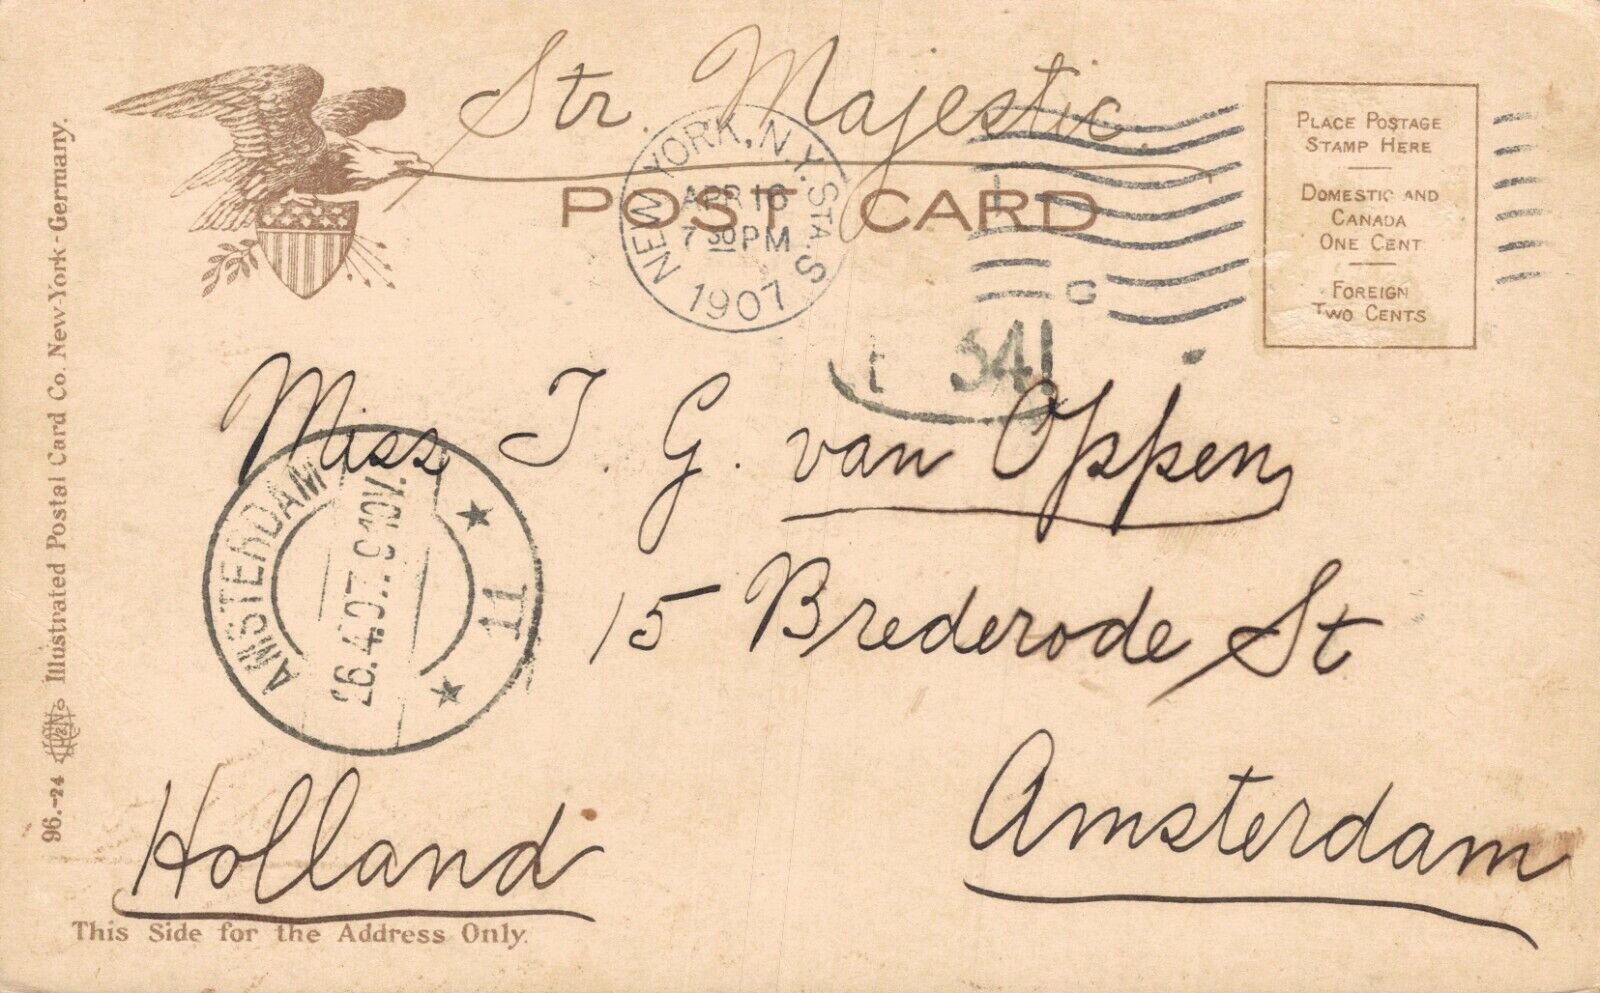 Str. Majestic.
NEW YORK, N.Y. STA. S
APR 16
7 30 PM
1907
POST CARD
PLACE POSTAGE
STAMP HERE
DOMESTIC AND
CANADA
ONE CENT
FOREIGN
TWO CENTS
G
341
Miss J. G. van Oppen
15 Brederode St
Amsterdam
Holland
AMSTERDAM
26.4.07. 9-10V.
11
This Side for the Address Only.
96.-24 Illustrated Postal Card Co. New-York-Germany.